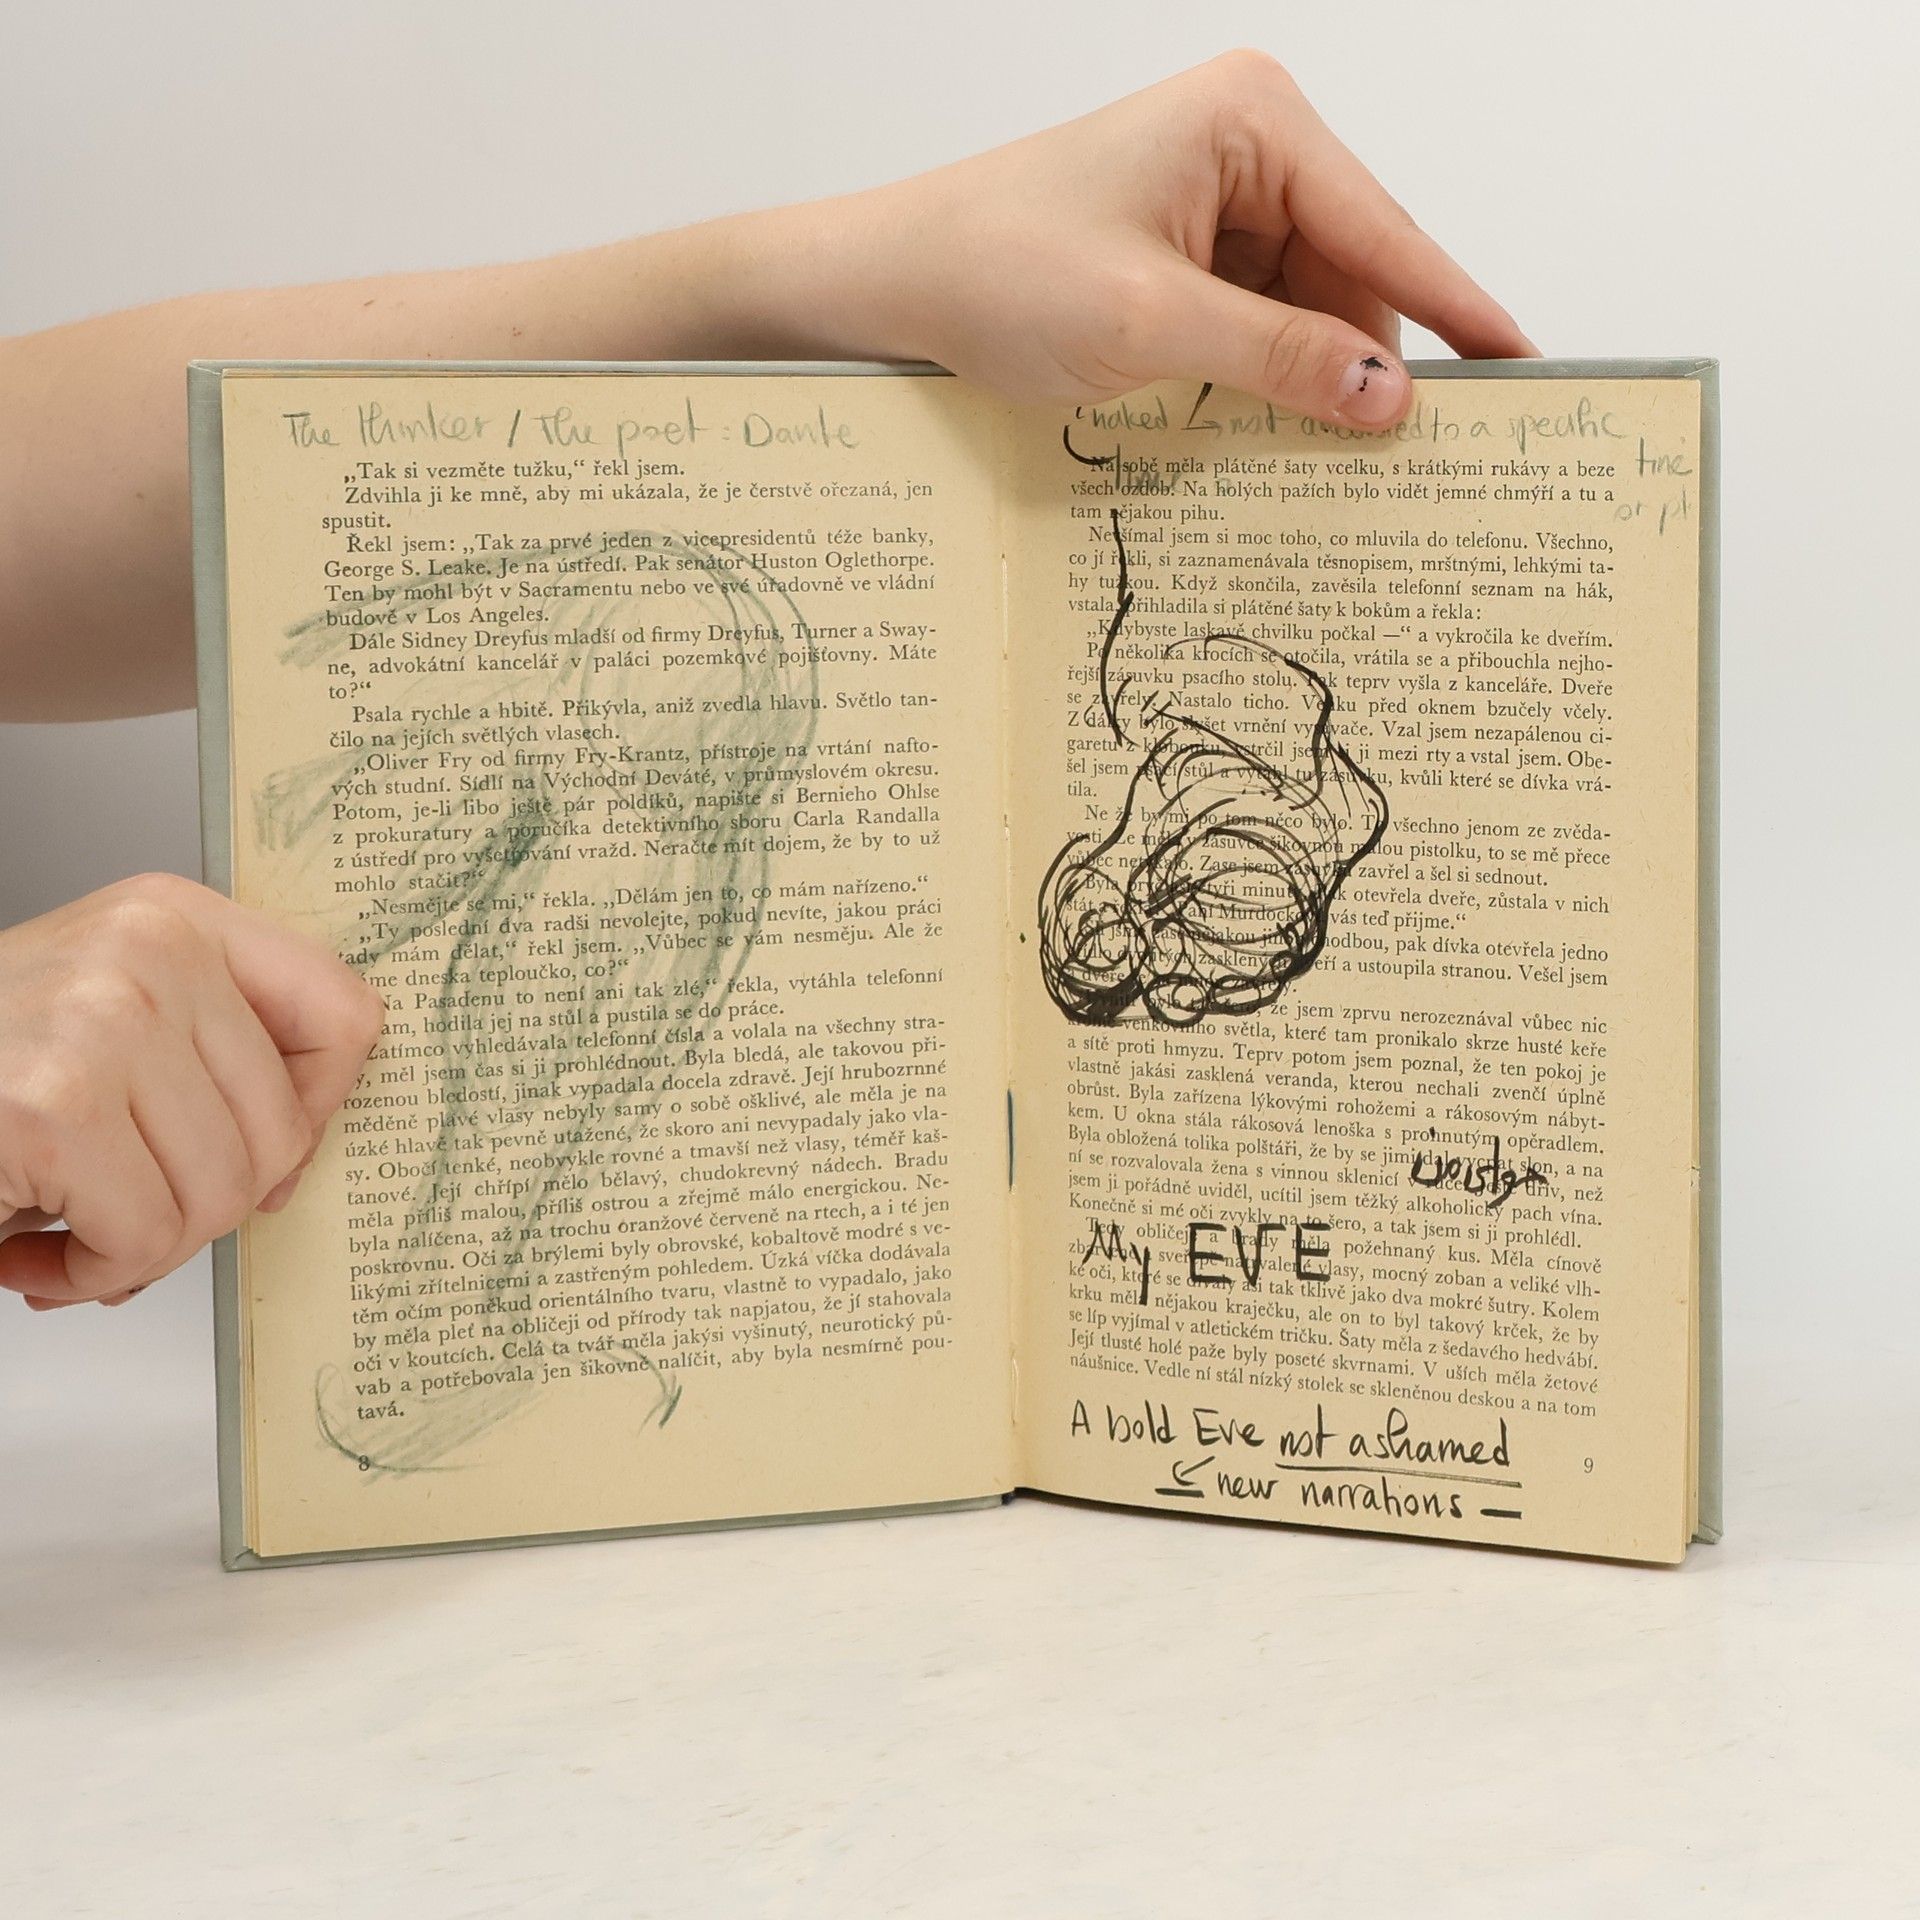 The thinker / The poet : Dante
„Tak si vezměte tužku,“ řekl jsem.
Zdvihla ji ke mně, aby mi ukázala, že je čerstvě ořezaná, jen
spustit.
Řekl jsem: „Tak za prvé jeden z vicepresidentů téže banky,
George S. Leake. Je na ústředí. Pak senátor Huston Oglethorpe.
Ten by mohl být v Sacramentu nebo ve své úřadovně ve vládní
budově v Los Angeles.
Dále Sidney Dreyfus mladší od firmy Dreyfus, Turner a Sway-
ne, advokátní kancelář v paláci pozemkové pojišťovny. Máte
to?“
Psala rychle a hbitě. Přikývla, aniž zvedla hlavu. Světlo tan-
čilo na jejích světlých vlasech.
„Oliver Fry od firmy Fry-Krantz, přístroje na vrtání nafto-
vých studní. Sídlí na Východní Deváté, v průmyslovém okresu.
Potom, je-li libo ještě pár poldíků, napište si Bernieho Ohlse
z prokuratury a poručíka detektivního sboru Carla Randalla
z ústředí pro vyšetřování vražd. Neračte mít dojem, že by to už
mohlo stačit?“
„Nesmějte se mi,“ řekla. „Dělám jen to, co mám nařízeno.“
„Ty poslední dva radši nevolejte, pokud nevíte, jakou práci
tady mám dělat,“ řekl jsem. „Vůbec se vám nesměju. Ale že
dneska teploučko, co?“
„Na Pasadenu to není ani tak zlé,“ řekla, vytáhla telefonní
hodila jej na stůl a pustila se do práce.
Zatímco vyhledávala telefonní čísla a volala na všechny stra-
měl jsem čas si ji prohlédnout. Byla bledá, ale takovou při-
rozenou bledostí, jinak vypadala docela zdravě. Její hrubozrnné
měděně plavé vlasy nebyly samy o sobě ošklivé, ale měla je na
úzké hlavě tak pevně utažené, že skoro ani nevypadaly jako vla-
sy. Obočí tenké, neobvykle rovné a tmavší než vlasy, téměř kaš-
tanové. Její chřípí mělo bělavý, chudokrevný nádech. Bradu
měla příliš malou, příliš ostrou a zřejmě málo energickou. Ne-
byla nalíčena, až na trochu oranžové červeně na rtech, a i té jen
poskrovnu. Oči za brýlemi byly obrovské, kobaltově modré s ve-
likými zřítelnicemi a zastřeným pohledem. Úzká víčka dodávala
těm očím poněkud orientálního tvaru, vlastně to vypadalo, jako
by měla pleť na obličeji od přírody tak napjatou, že jí stahovala
oči v koutcích. Celá ta tvář měla jakýsi vyšinutý, neurotický pů-
vab a potřebovala jen šikovně nalíčit, aby byla nesmírně pou-
tavá.
8
naked not to a specific
time
or pl
Na sobě měla plátěné šaty vcelku, s krátkými rukávy a beze
všech ozdob. Na holých pažích bylo vidět jemné chmýří a tu a
tam nějakou pihu.
Nevšímal jsem si moc toho, co mluvila do telefonu. Všechno,
co jí řekli, si zaznamenávala těsnopisem, mrštnými, lehkými ta-
hy tužkou. Když skončila, zavěsila telefonní seznam na hák,
vstala, přihladila si plátěné šaty k bokům a řekla:
„Kdybyste laskavě chvilku počkal —“ a vykročila ke dveřím.
Po několika krocích se otočila, vrátila se a přibouchla nejho-
řejší zásuvku psacího stolu. Pak teprv vyšla z kanceláře. Dveře
se zavřely. Nastalo ticho. Venku před oknem bzučely včely.
Z dálky bylo slyšet vrnění vysavače. Vzal jsem nezapálenou ci-
garetu z klobouku, vstrčil jsem si ji mezi rty a vstal jsem. Obe-
šel jsem psací stůl a vytáhl tu zásuvku, kvůli které se dívka vrá-
tila.
Ne že by mi po tom něco bylo. To všechno jenom ze zvěda-
vosti. Že měla v zásuvce šikovnou malou pistolku, to se mě přece
vůbec netýkalo. Zase jsem zásuvku zavřel a šel si sednout.
Byla pryč asi čtyři minuty. Pak otevřela dveře, zůstala v nich
stát a řekla: „Paní Murdocková vás teď přijme.“
Šli jsme zase nějakou jinou chodbou, pak dívka otevřela jedno
zasklených dveří a ustoupila stranou. Vešel jsem
a dveře se
že jsem zprvu nerozeznával vůbec nic
kromě venkovního světla, které tam pronikalo skrze husté keře
a sítě proti hmyzu. Teprv potom jsem poznal, že ten pokoj je
vlastně jakási zasklená veranda, kterou nechali zvenčí úplně
obrůst. Byla zařízena lýkovými rohožemi a rákosovým nábyt-
kem. U okna stála rákosová lenoška s prohnutým opěradlem.
Byla obložená tolika polštáři, že by se jimi dal vycpat slon, a na
ní se rozvalovala žena s vinnou sklenicí v ruce. Ještě dřív, než
jsem ji pořádně uviděl, ucítil jsem těžký alkoholický pach vína.
Konečně si mé oči zvykly na to šero, a tak jsem si ji prohlédl.
Tedy obličej a brady měla požehnaný kus. Měla cínově
vlasy, mocný zoban a veliké vlh-
ké oči, které se dívaly asi tak tklivě jako dva mokré šutry. Kolem
krku měla nějakou kraječku, ale on to byl takový krček, že by
se líp vyjímal v atletickém tričku. Šaty měla z šedavého hedvábí.
Její tlusté holé paže byly poseté skvrnami. V uších měla žetové
náušnice. Vedle ní stál nízký stolek se skleněnou deskou a na tom
My EVE
A bold Eve not ashamed
new narrations —
9